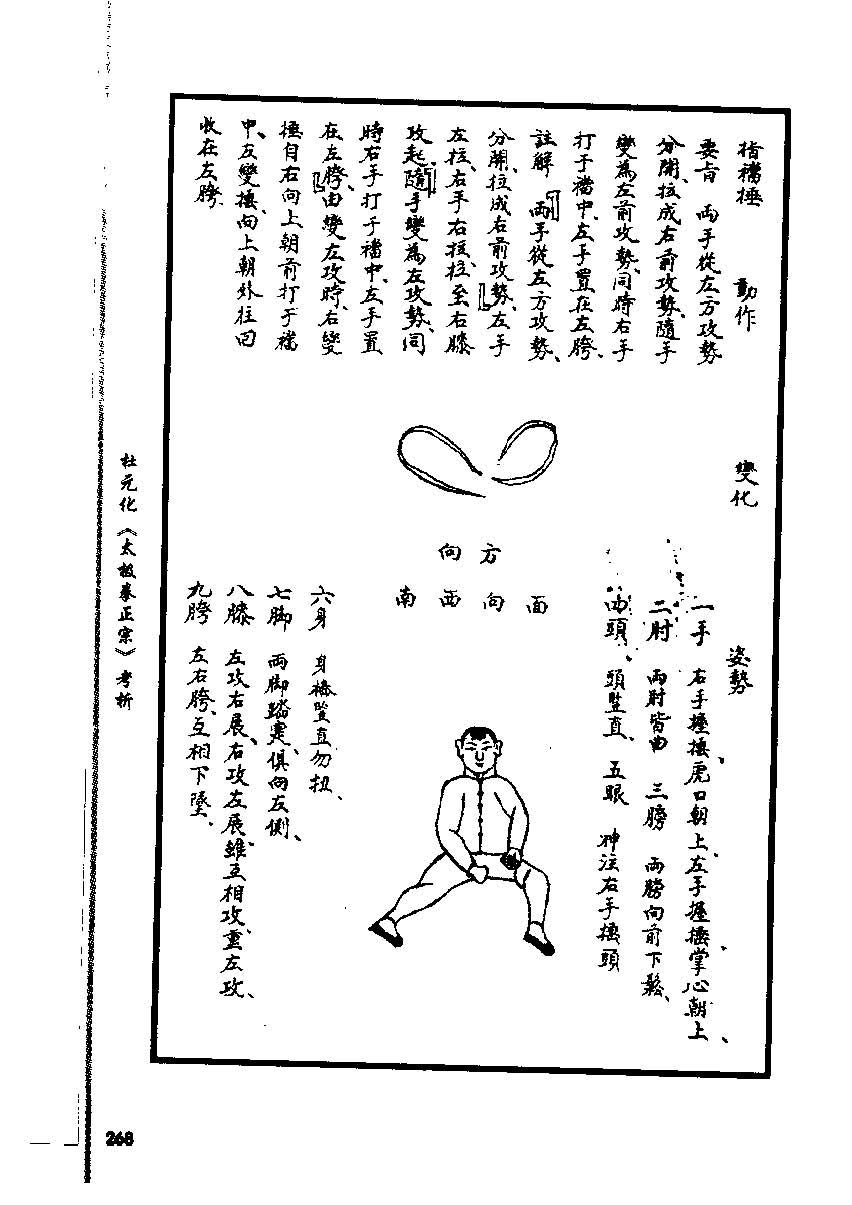 指襠捶
動作
變化
姿勢
要旨 兩手從左方攻勢
分開、拉成右前攻勢、隨手
變為左前攻勢、同時右手
打于襠中、左手置在左胯、
註解 兩手從左方攻勢、
分開、拉成右前攻勢、左手
左拉、右手右拉、拉至右膝
攻起、隨手變為左攻勢、同
時右手打于襠中、左手置
在左胯、由變左攻時、右變
捶自右向上朝前打于襠
中、左變捶、向上朝外往回
收在左胯、
方向
面向西南
一手 右手握捶、虎口朝上、左手握捶掌心朝上、
二肘 兩肘皆曲 三膀 兩膀向前下鬆、
四頭、頭豎直、五眼 神注右手捶頭
六身 身樁豎直勿扭、
七脚 兩脚踏實、俱向左側、
八膝 左攻右展、右攻左展、雖互相攻、重左攻、
九胯 左右胯、互相下墜、
杜元化《太极拳正宗》考析
268